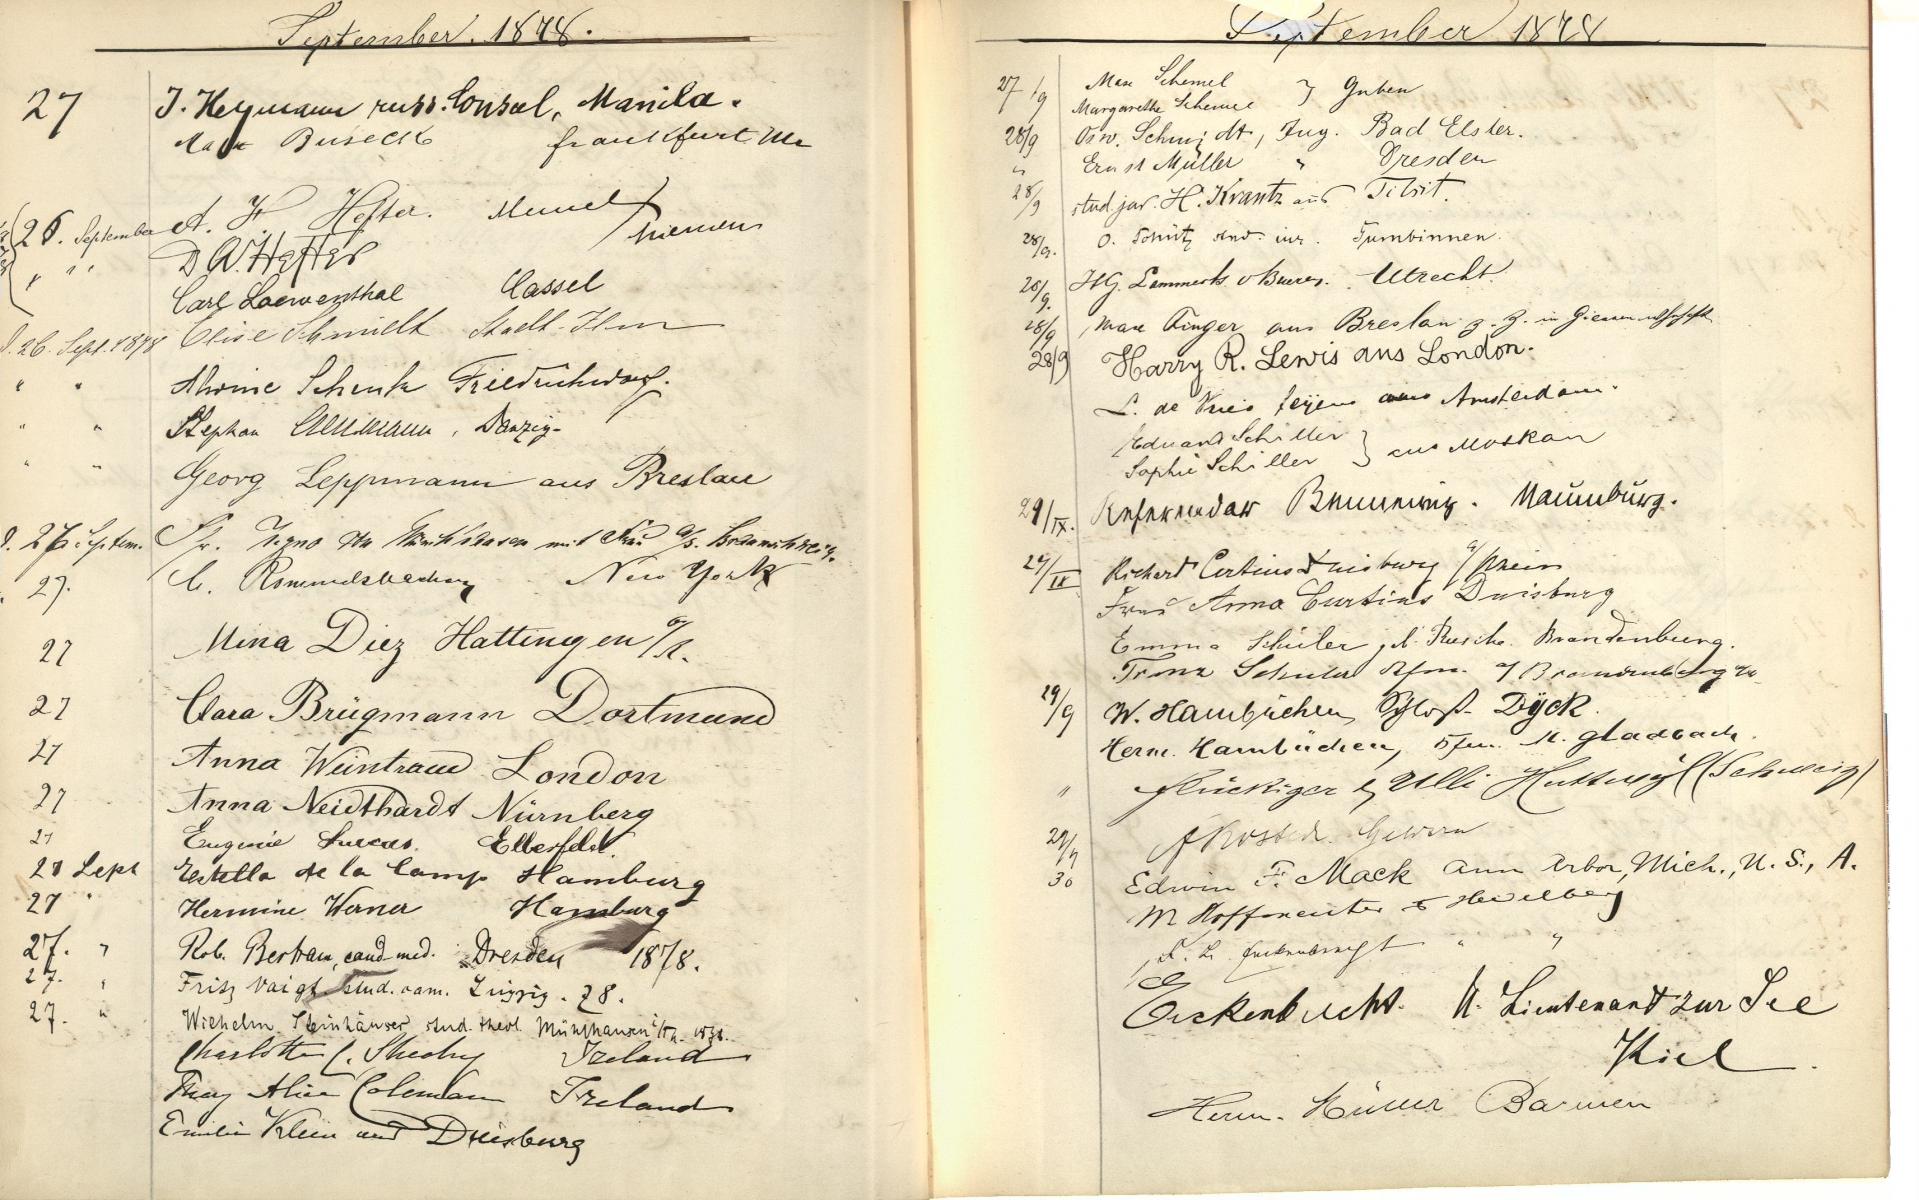 September. 1878.
27 J. Heymann russ. Consul, Manila.
Max Buseck Frankfurt
26. September A. H. Hefter. Memel
" " D A. Hefter Niemen
Carl Loewenthal Cassel
26. Sept. 1878 Elise Schmidt Stadt-Ilm
" " Alwine Schenk
" " Stephan , Danzig.
" " Georg Leppmann aus Breslau
27 Septem. mit Frau a/s. Braunschweig.
27. C. New York
27 Mina Diez Hattingen a/R.
27 Clara Brügmann Dortmund
27 Anna Weintraud London
27 Anna Neidthardt Nürnberg
27 Eugenie Lucas. Elberfeld.
27 Sept Estella de la Camp Hamburg
27 " Hermine Werner Hamburg
27. " Rob. Bertram, cand. med. Dresden 1878.
27. " Fritz Voigt. stud. cam. Leipzig. 78.
27. " Wilhelm Steinhäuser stud. theol. Mühlhausen i/Th. 1878.
Charlotte C. Sheehy Ireland
May Alice Coleman Ireland
Emilie Klein aus Duisburg
September 1878
27/9 Max Schemel } Guben
Margarethe Schemel
28/9 Osw. Schmidt, Ing. Bad Elster.
" Ernst Müller " Dresden
28/9 stud jur. H. Krantz aus Tilsit.
28/9. O. Schütz stud. iur. Gumbinnen.
28/9. H G. Lammerts v Bueren. Utrecht.
28/9 Max Finger aus Breslau z. Z. in
28/9 Harry R. Lewis aus London.
L. de Vries aus Amsterdam.
Eduard Schiller } aus Moskau
Sophie Schiller
29/IX. Referendar Naumburg.
29/IX Richard Curtius Duisburg a/Rhein
Frau Anna Curtius Duisburg
Emma Schüler Brandenburg.
Franz Schüler a/ Brandenburg
29/9 W. Hambüchen, Schloß Dyck.
Herm. Hambüchen, M. Gladbach.
" Flückiger & Ulli Huttwyl (Schweiz)
29/9
30 Edwin F. Mack Ann Arbor, Mich., U. S., A.
M Hoffmeister Heidelberg
" "
Eickenb Lieutenant zur See
Kiel.
Herm. Müller Barmen